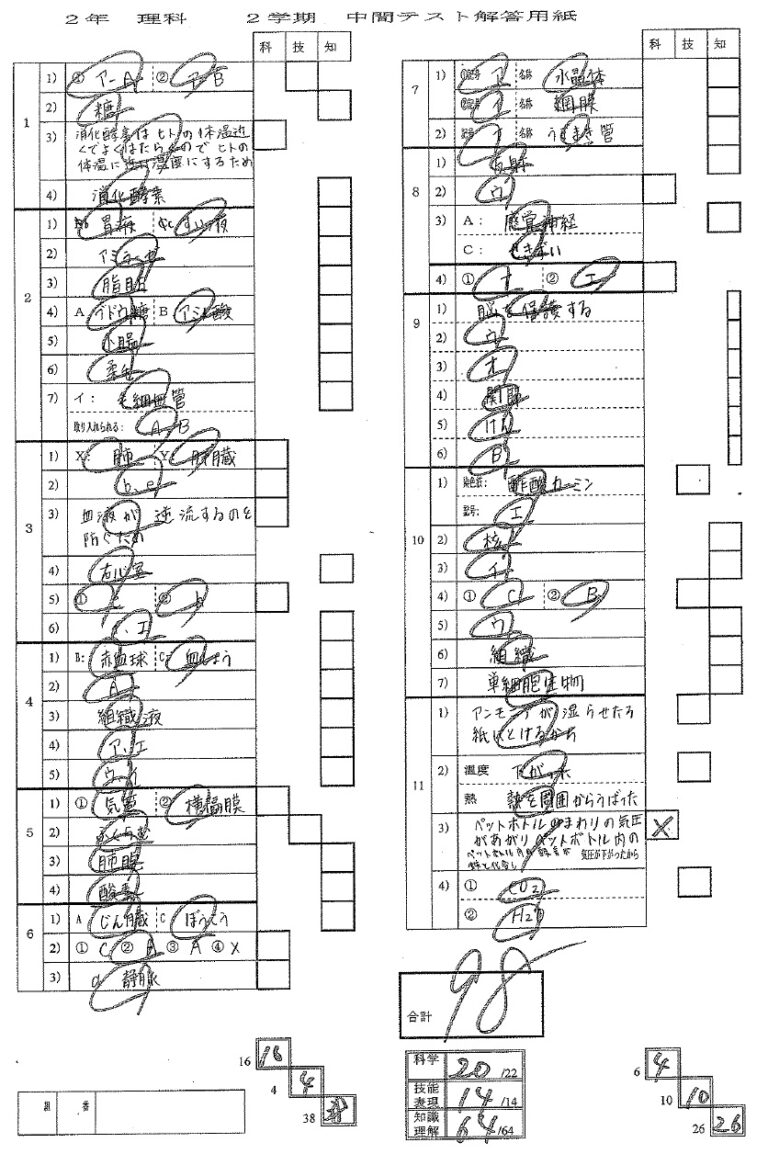 2年 理科 2学期 中間テスト解答用紙
科 技 知
1
1) ① ア-A ② ア B
2) 糖
3) 消化酵素はヒトの体温近
くでよくはたらくので ヒトの
体温に近い温度にするため
4) 消化酵素
2
1) 胃液 すい液
2) アミラーゼ
3) 脂肪
4) A ブドウ糖 B アミノ酸
5) 小腸
6) 柔毛
7) イ: 毛細血管
取り入れられる: A、B
3
1) X: 肺 Y: 肝臓
2) b、e
3) 血液が 逆流するのを
防ぐため
4) 右心室
5) ① ② b
6) 、エ
4
1) B: 赤血球 C: 血しょう
2) A
3) 組織液
4) ア、エ
5) ウ、イ
5
1) ① 気管 ② 横隔膜
2) ふくらむ
3) 肺胞
4) 酸素
6
1) A じん臓 C ぼうこう
2) ① C ② A ③ A ④ X
3) d 静脈
16 16
4 4
38 38
組 番
科 技 知
7
1) 記号 ア 名称 水晶体
記号 イ 名称 網膜
2) 記号 オ 名称 うずまき管
8
1) 反射
2) ウ
3) A: 感覚神経
C: せきずい
4) ① オ ② エ
9
1) 脳を保護する
2) ウ
3) オ
4) 関節
5) けん
6) B
10
1) 染色液: 酢酸カーミン
記号: エ
2) 核
3) イ
4) ① C ② B
5) ウ
6) 組織
7) 単細胞生物
11
1) アンモニアが 湿らせたろ
紙にとけるから
2) 温度 下がった
熱 熱を周囲からうばった
3) ペットボトルのまわりの気圧
があがり ペットボトル内の
気圧が下がったから
4) ① CO2
② H2O
合計 98
科学 20 /22
技能
表現 14 /14
知識
理解 64 /64
6 4
10 10
26 26